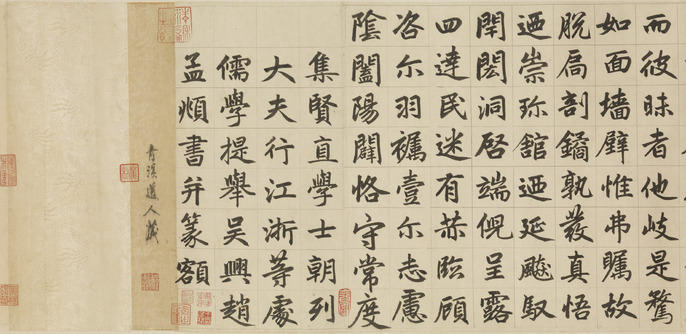 而彼昧者他岐是騖
如面墻壁惟弗矚故
脫扃剖鐍孰發真悟
迺崇珎館迺延飈馭
閈閎洞啓端倪呈露
四達民迷有恭臨顧
咨尒羽壹尒志慮
隂闔陽闢恪守常度
集賢直學士朝列
大夫行江浙等處
儒學提舉吳興趙
孟頫書并篆額
青溪道人藏